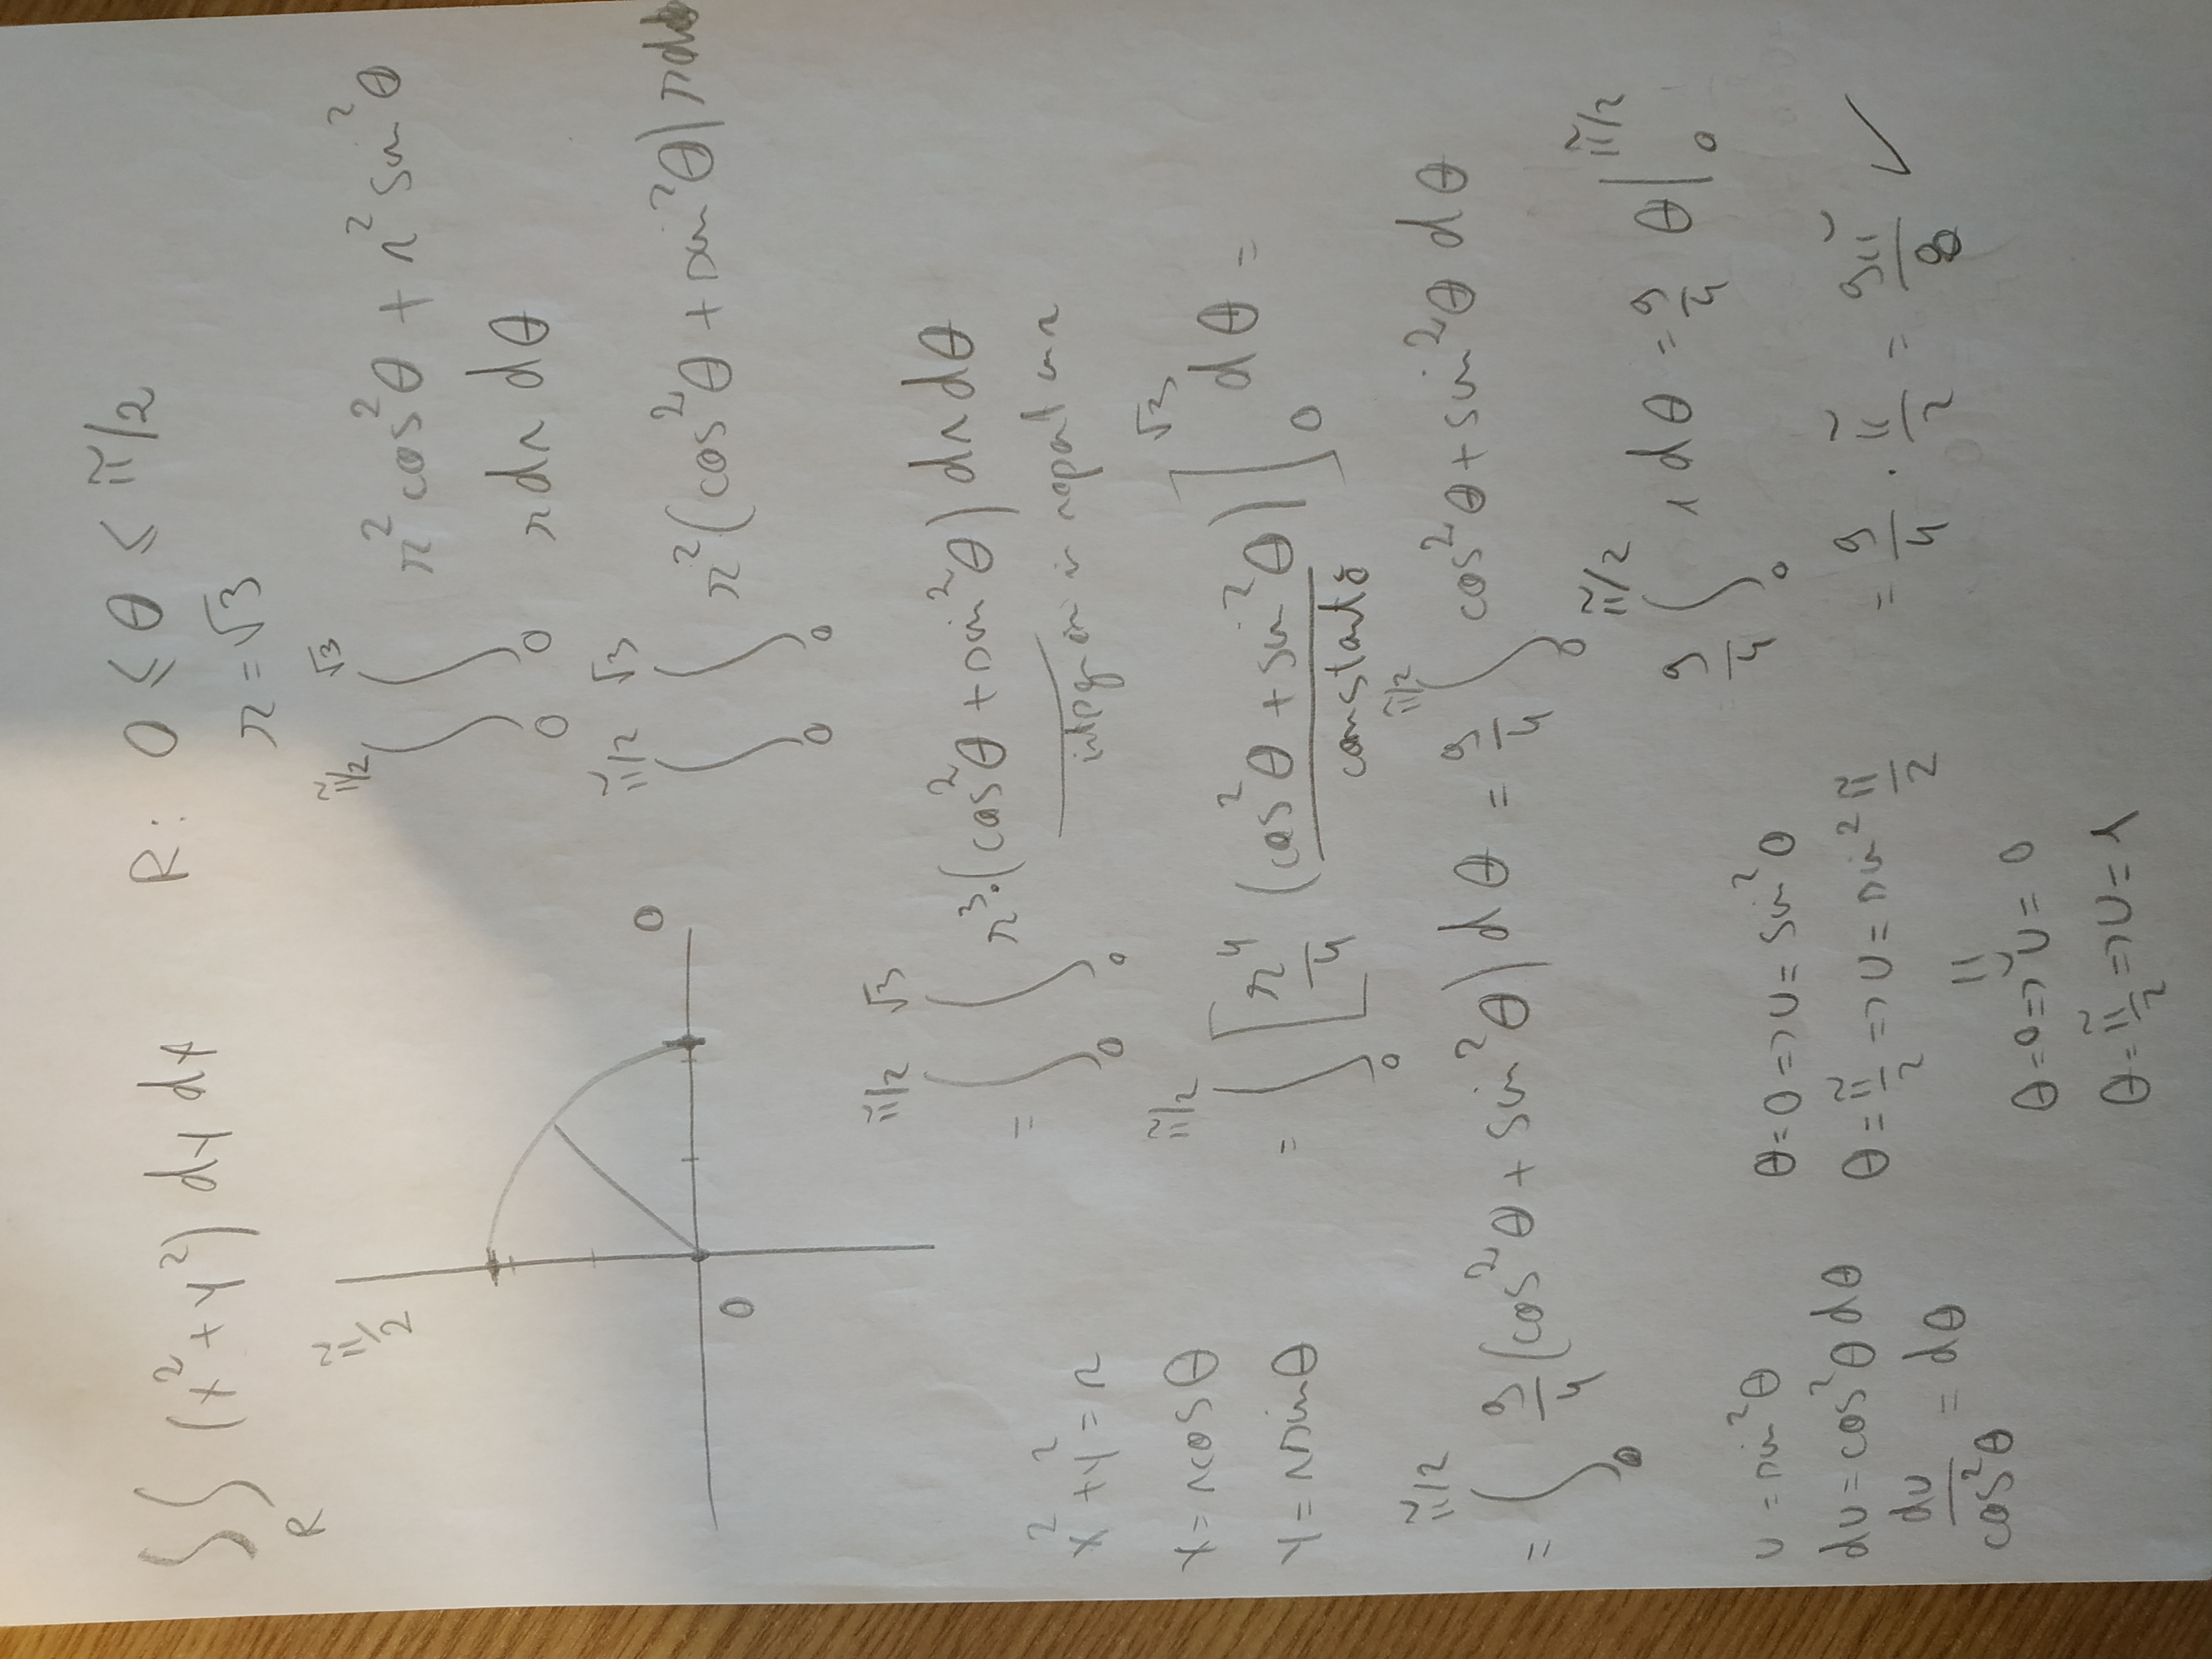 ∫∫ (x²+y²) dy dx R: 0 ≤ θ ≤ π/2
R r = √3
π/2
0
0
π/2 √3
∫ ∫ r² cos²θ + r² sin²θ
0 0 r dr dθ
π/2 √3
∫ ∫ r² (cos²θ + sin²θ) r dr
0 0
π/2 √3
= ∫ ∫ r³·(cos²θ + sin²θ) dr dθ
0 0 in raport cu r
x² + y² = r
x = r cos θ
y = r sin θ
π/2 √3
= ∫ [r⁴/4 (cos²θ + sin²θ)] dθ =
0 0
constantă
π/2 π/2
= ∫ 9/4 (cos²θ + sin²θ) dθ = 9/4 ∫ cos²θ + sin²θ dθ
0 0
π/2 π/2
9/4 ∫ 1 dθ = 9/4 θ|
0 0
= 9/4 · π/2 = 9π/8 ✓
u = sin²θ
du = cos²θ dθ
du/cos²θ = dθ
θ = 0 => u = sin²0
θ = π/2 => u = sin² π/2
||
θ = 0 => u = 0
θ = π/2 => u = 1